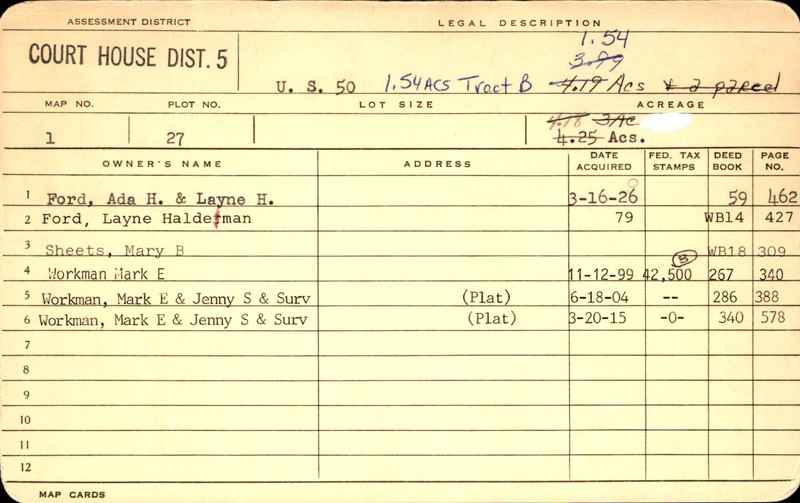 ASSESSMENT DISTRICT LEGAL DESCRIPTION
COURT HOUSE DIST. 5
1.54
3.99
U. S. 50 1.54 Acs Tract B 4.19 Acs & a parcel
MAP NO. PLOT NO. LOT SIZE ACREAGE
4.18 3 Ac
1 27 4.25 Acs.
OWNER'S NAME ADDRESS DATE ACQUIRED FED. TAX STAMPS DEED BOOK PAGE NO.
1 Ford, Ada H. & Layne H. 3-16-26 59 462
2 Ford, Layne Halderman 79 WB14 427
3 Sheets, Mary B WB18 309
4 Workman Mark E 11-12-99 42,500 267 340
5 Workman, Mark E & Jenny S & Surv (Plat) 6-18-04 -- 286 388
6 Workman, Mark E & Jenny S & Surv (Plat) 3-20-15 -0- 340 578
7
8
9
10
11
12
MAP CARDS